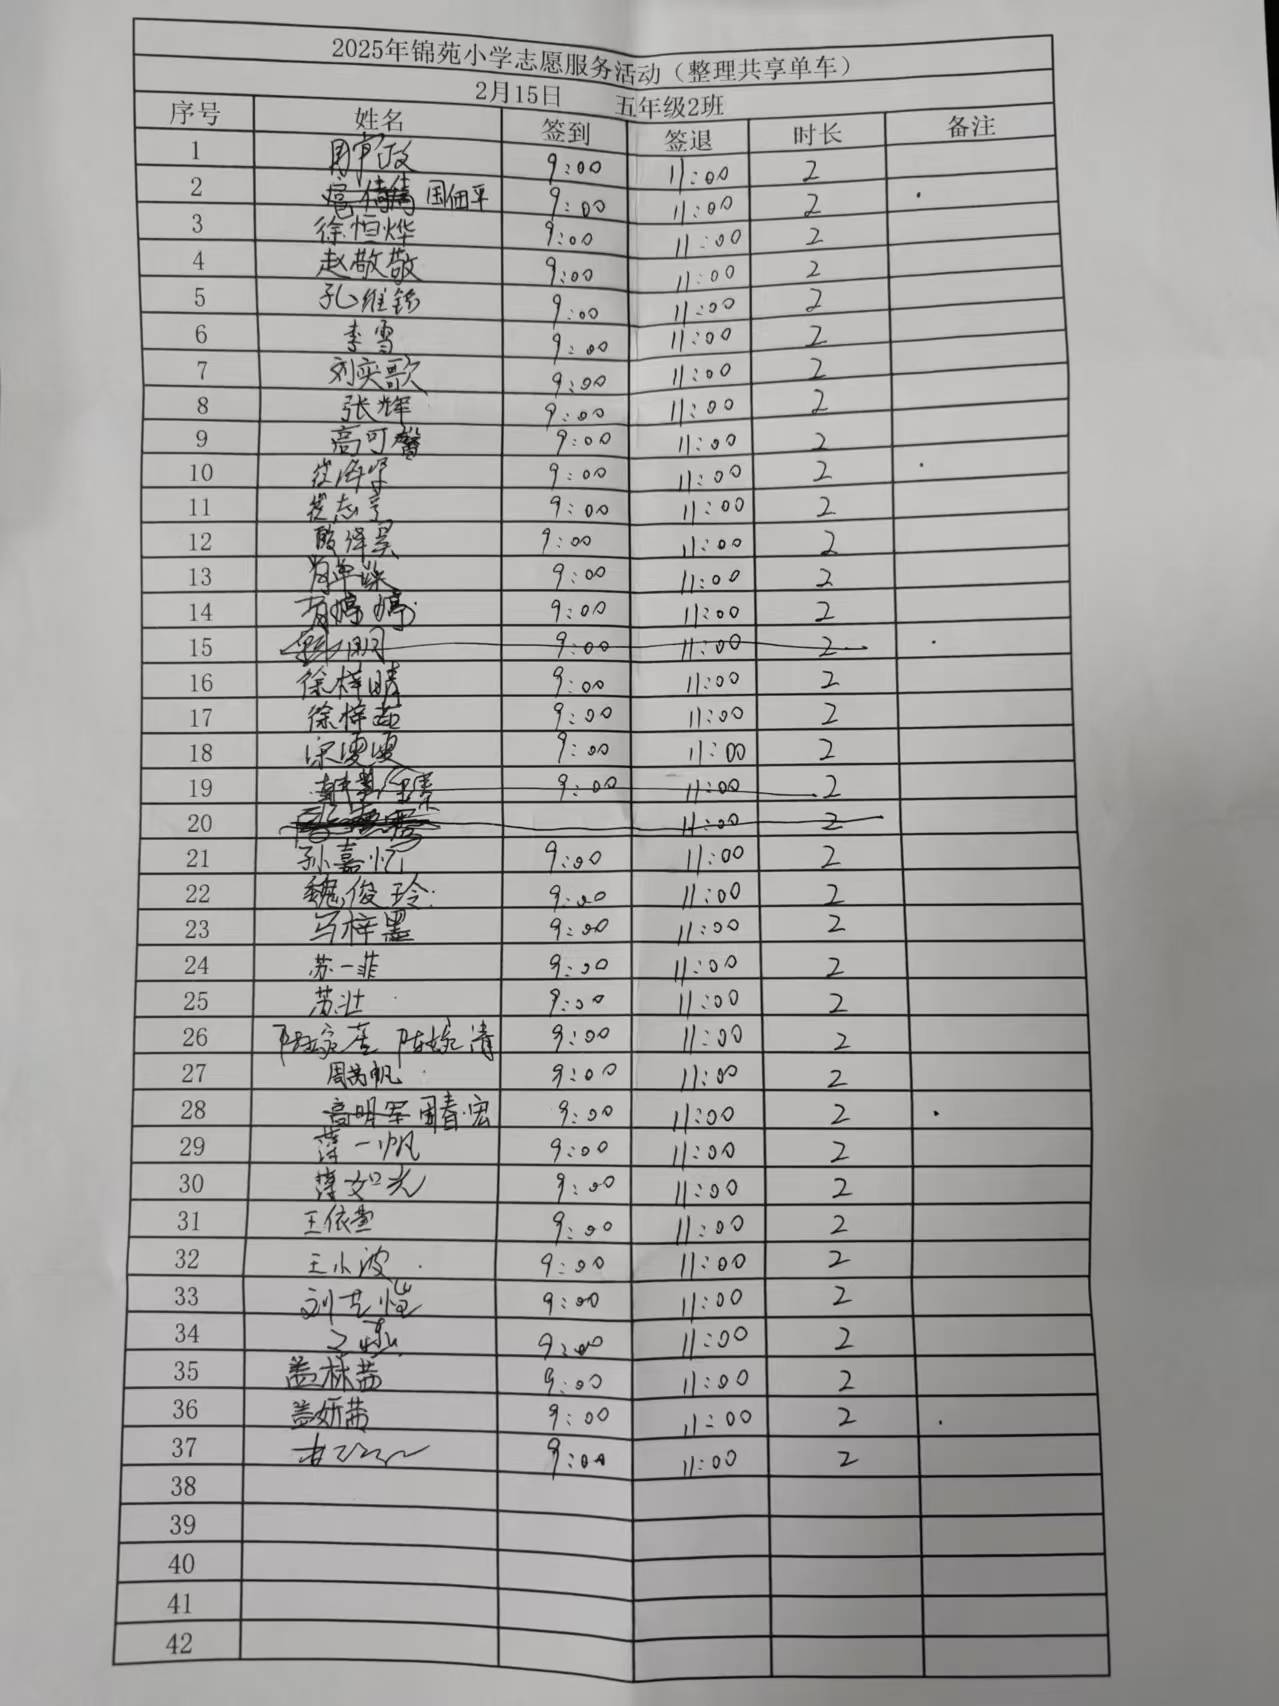 2025年锦苑小学志愿服务活动（整理共享单车）
2月15日 五年级2班
序号 姓名 签到 签退 时长 备注
1 9:00 11:00 2
2 国佃平 9:00 11:00 2
3 徐恒烨 9:00 11:00 2
4 赵敬敬 9:00 11:00 2
5 孔维铭 9:00 11:00 2
6 李雪 9:00 11:00 2
7 刘奕歌 9:00 11:00 2
8 张辉 9:00 11:00 2
9 高可馨 9:00 11:00 2
10 9:00 11:00 2
11 9:00 11:00 2
12 9:00 11:00 2
13 9:00 11:00 2
14 婷婷 9:00 11:00 2
15 9:00 11:00 2
16 徐梓晴 9:00 11:00 2
17 徐梓 9:00 11:00 2
18 9:00 11:00 2
19 9:00 11:00 2
20 11:00 2
21 孙嘉忆 9:00 11:00 2
22 魏俊玲 9:00 11:00 2
23 马梓墨 9:00 11:00 2
24 苏一菲 9:00 11:00 2
25 苏壮 9:00 11:00 2
26 陈婉清 9:00 11:00 2
27 周 帆 9:00 11:00 2
28 高明军 国春宏 9:00 11:00 2
29 薄一帆 9:00 11:00 2
30 薄如光 9:00 11:00 2
31 王依萱 9:00 11:00 2
32 王小波 9:00 11:00 2
33 刘 9:00 11:00 2
34 9:00 11:00 2
35 盖林茜 9:00 11:00 2
36 盖妍茜 9:00 11:00 2
37 9:00 11:00 2
38
39
40
41
42